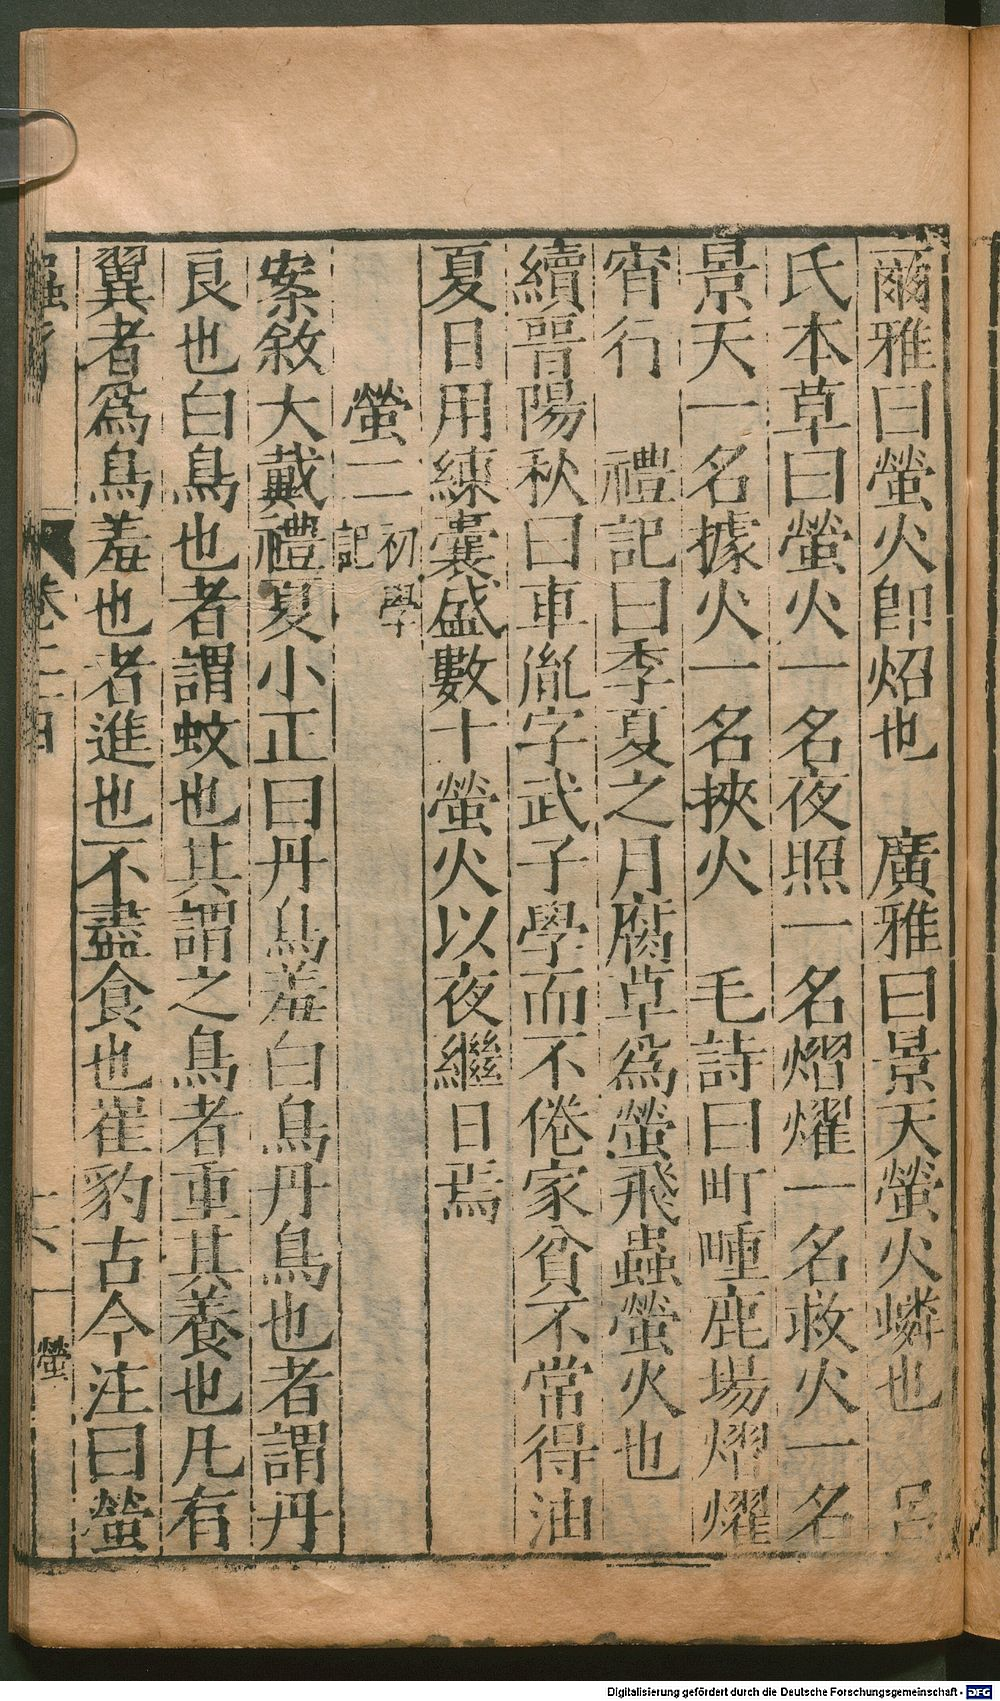 爾雅曰螢火即炤也　廣雅曰景天螢火燐也　呂
氏本草曰螢火一名夜照一名熠燿一名救火一名
景天一名據火一名挾火　毛詩曰町畽鹿場熠燿
宵行　禮記曰季夏之月腐草爲螢飛蟲螢火也
續晉陽秋曰車胤字武子學而不倦家貧不常得油
夏日用練囊盛數十螢火以夜繼日焉
螢二 初學記
案敘大戴禮夏小正曰丹鳥羞白鳥丹鳥也者謂丹
良也白鳥也者謂蚊也其謂之鳥者重其養也凡有
翼者爲鳥羞也者進也不盡食也崔豹古今注曰螢
卷二十四
十六
螢
Digitalisierung gefördert durch die Deutsche Forschungsgemeinschaft - DFG